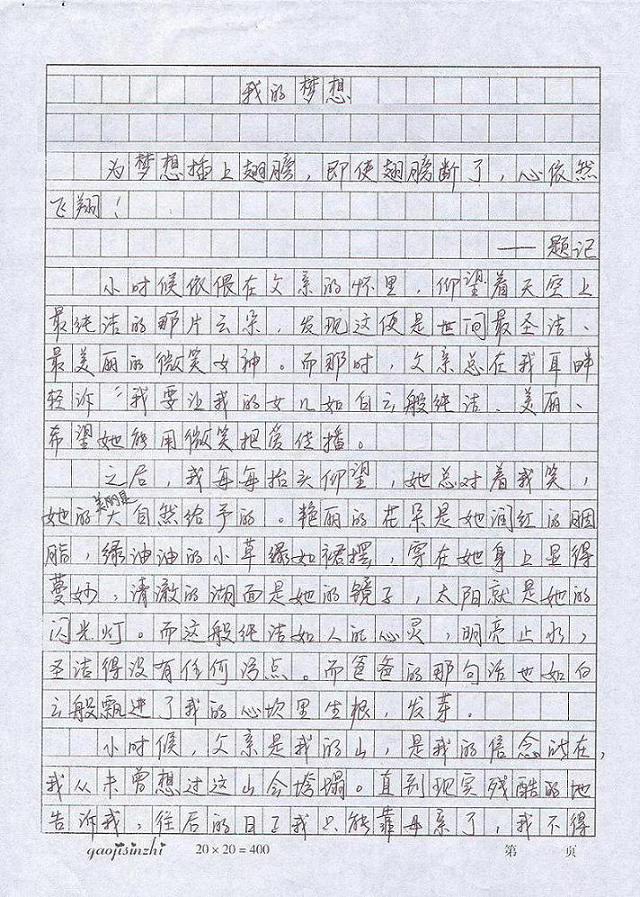 我的梦想
为梦想插上翅膀，即使翅膀断了，心依然
飞翔！
——题记
小时候依偎在父亲的怀里，仰望着天空上
最纯洁的那片云朵，发现这便是世间最圣洁、
最美丽的微笑女神。而那时，父亲总在我耳畔
轻诉“我要让我的女儿如白云般纯洁、美丽、
希望她能用微笑把爱传播。
之后，我每每抬头仰望，她总对着我笑，
美丽是
她的大自然给予的。艳丽的花朵是她润红的胭
脂，绿油油的小草缘如裙摆，穿在她身上显得
蔓妙，清澈的湖面是她的镜子，太阳就是她的
闪光灯。而这般纯洁如人的心灵，明亮止水，
圣洁得没有任何污点。而爸爸的那句话也如白
云般飘进了我的心坎里生根，发芽。
小时候，父亲是我的山，是我的信念所在，
我从未曾想过这山会垮塌。直到现实残酷的地
告诉我，往后的日子我只能靠母亲了，我不得
gaojisinzhi 20×20=400 第 页